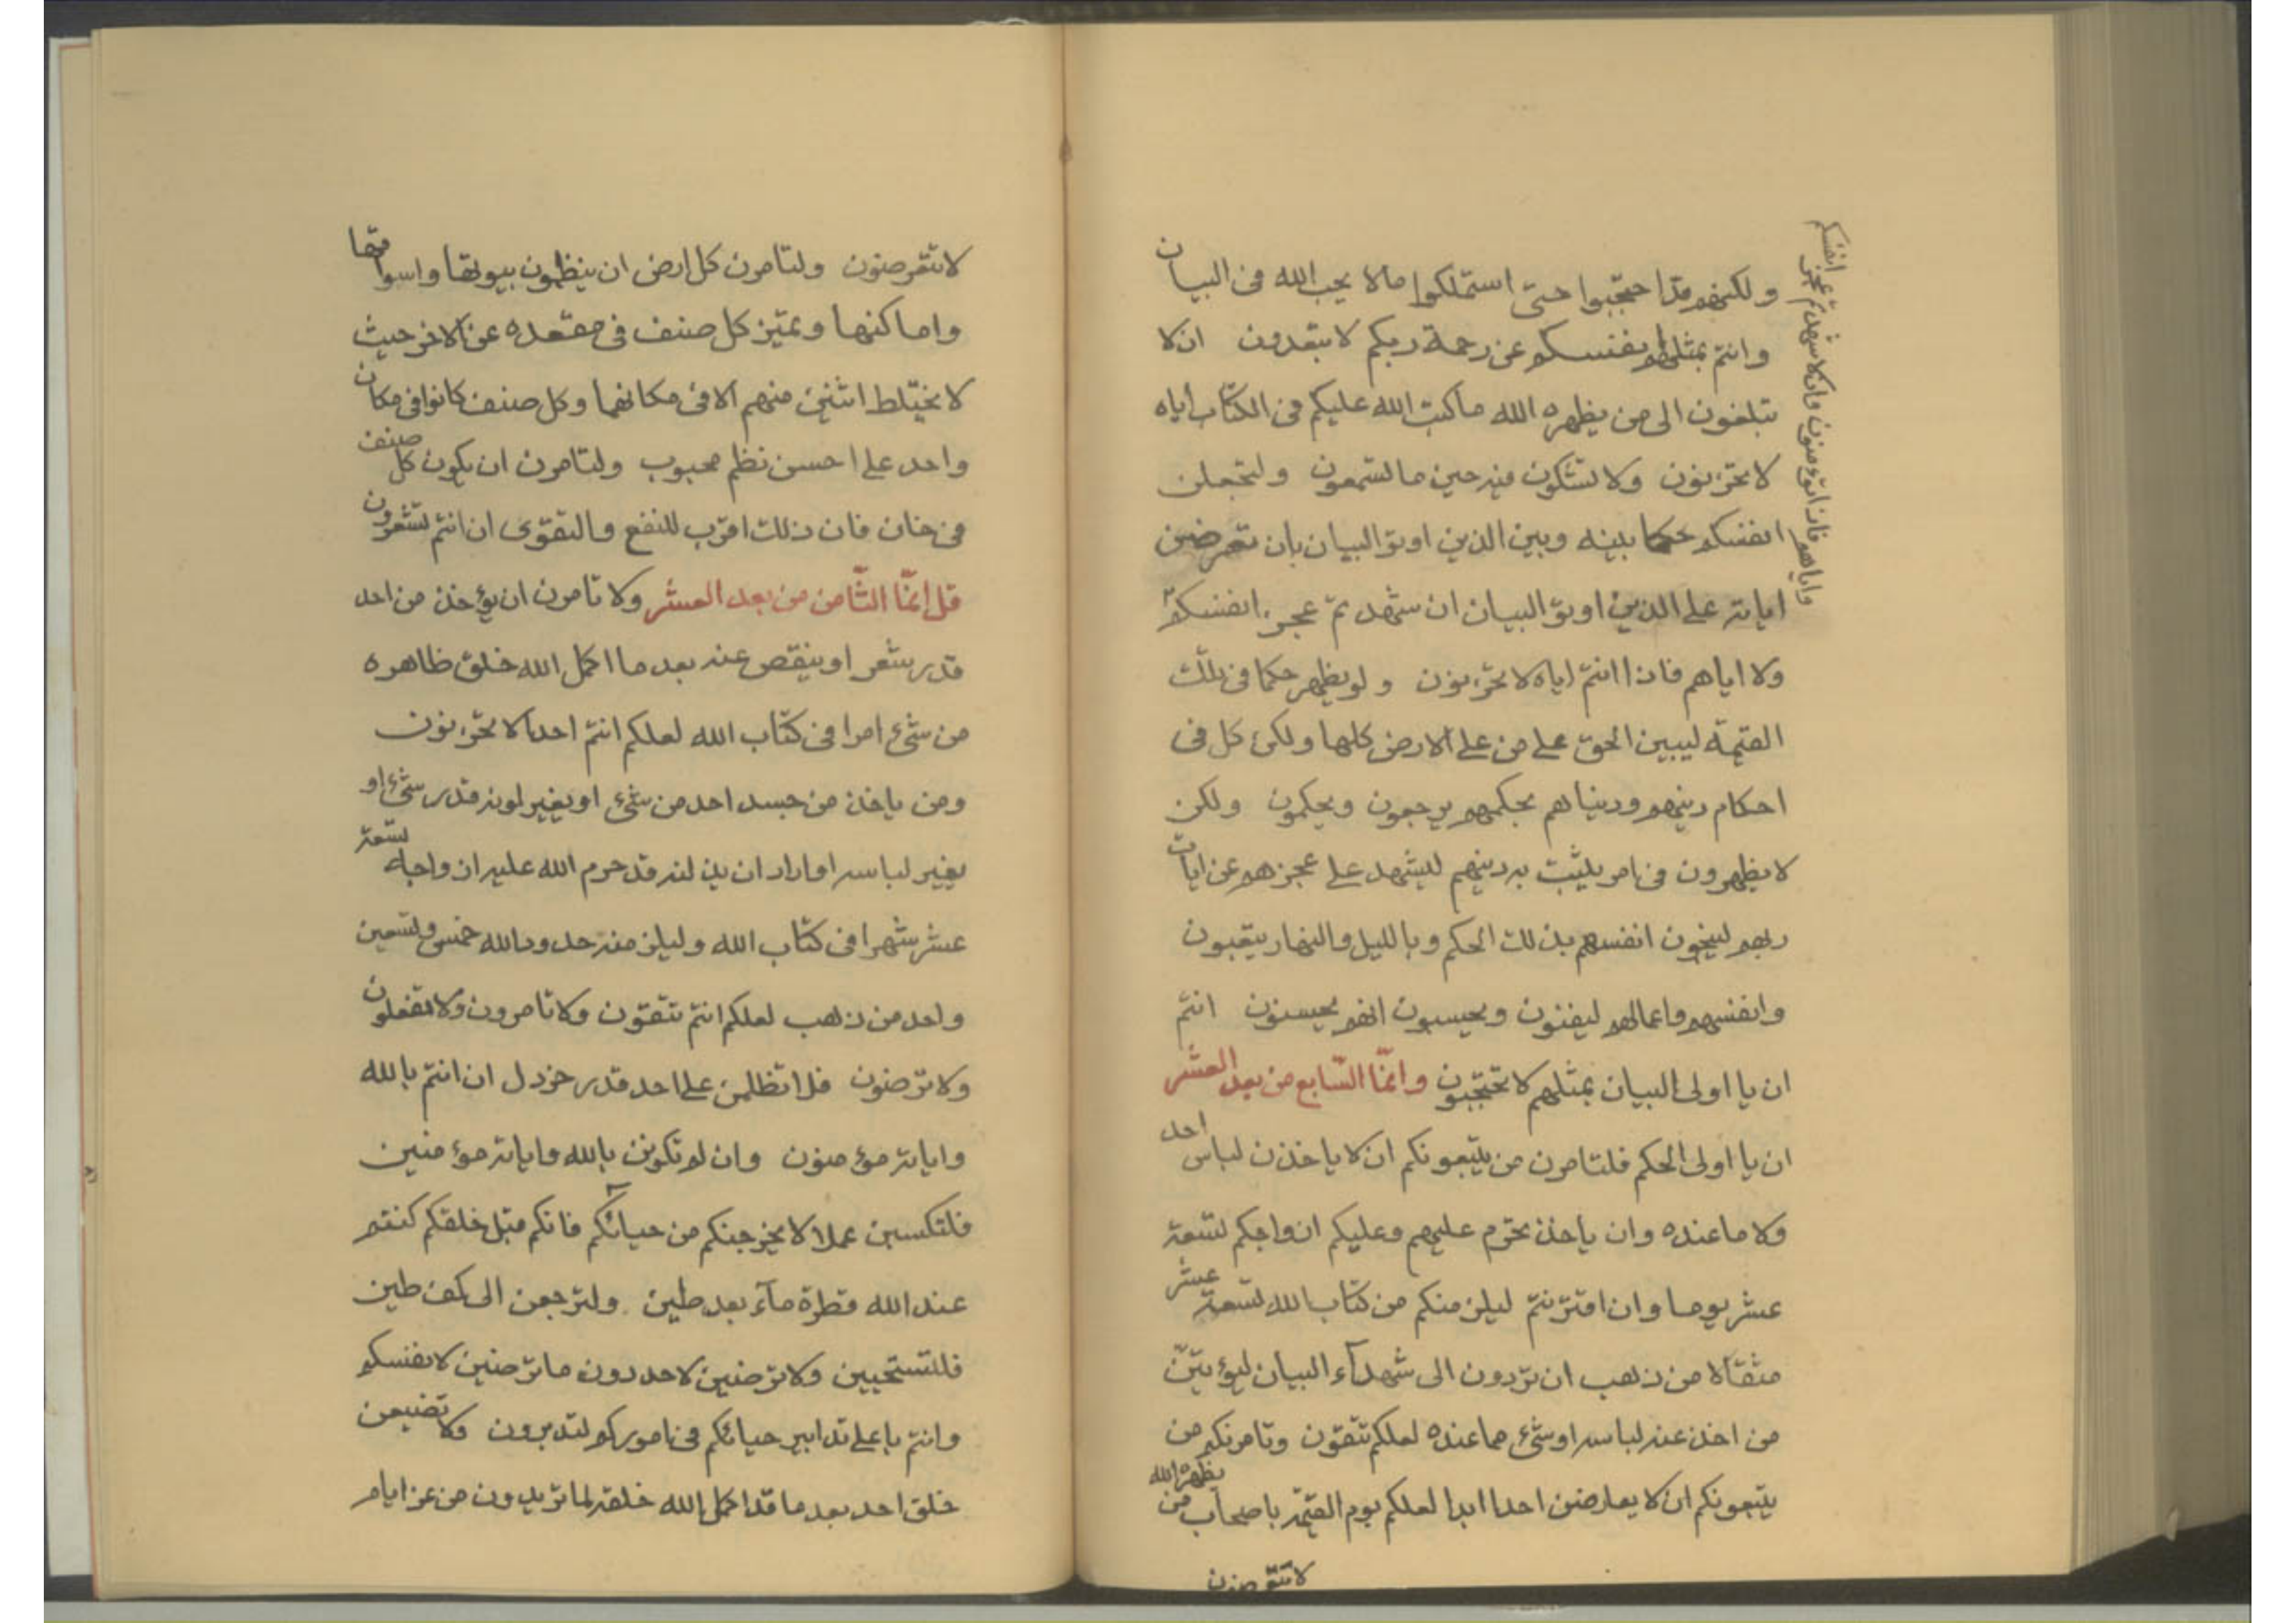 ولكنهم قد احتجبوا حتى استملكوا ما لا يحب الله في البيان
وانتم بمثلهم انفسكم عن رحمة ربكم لا تبعدون ان لا
تبلغون الى من يظهره الله ما كتب الله عليكم في الكتاب اياه
لا تحزنون ولا تشكون فيه حين ما تسمعون ولتجعلن
انفسكم حكما بينه وبين الذين اوتوا البيان بان تعرضن
اياته على الذين اوتوا البيان ان شهدتم عجز انفسكم
ولا اياهم فاذا انتم اياه لا تحزنون ولو يظهر حكما في تلك
القيمة ليبين الحق على من على الارض كلها ولكن كل في
احكام دينهم ودنياهم بحكمهم يرجعون ويحكمون ولكن
لا يظهرون في امر يثبت به دينهم ليشهد على عجزهم عن ايات
ربهم لينجون انفسهم بذلك الحكم وبالليل والنهار يتعبون
وانفسهم واعمالهم ليفنون ويحسبون انهم يحسنون انتم
ان يا اولى البيان بمثلهم لا تحتجبون وانما السابع من بعد العشر
ان يا اولى الحكم فلتامرن من يتبعونكم ان لا ياخذن لباس احد
ولا ما عنده وان ياخذ يحرم عليهم وعليكم ازواجكم تسعة
عشر يوما وان اقترنتم ليلزمنكم من كتاب الله تسعة عشر
مثقالا من ذهب ان تردون الى شهدآء البيان ليؤتين
من اخذ عنه لباسه او شئ مما عنده لعلكم تتقون وتامرنكم من
يتبعونكم ان لا يعارضن احدا ابدا لعلكم يوم القيمة باصحاب من يظهره الله
لا تتعرضون
وان لا شهدتم عجز انفسكم
واياهم
لا تتعرضون ولتامرن كل ارض ان ينظمون بيوتها واسواقها
واماكنها ويميز كل صنف في مقعده عن الاخر حيث
لا يختلط اثنين منهم الا في مكانهما وكل صنف كانوا في مكان
واحد على احسن نظم محبوب ولتامرن ان يكون كل صنف
في خان فان ذلك اقرب للنفع والتقوى ان انتم تشعرون
قل انما الثامن من بعد العشر ولا تامرن ان يؤخذ من احد
قدر شعر او ينقص عنه بعد ما اكمل الله خلق ظاهره
من شئ امرا في كتاب الله لعلكم انتم احدا لا تحزنون
ومن ياخذ من جسد احد من شئ او يغير لونه قدر شئ او
يغير لباسه او اراد ان يذلنه قد حرم الله عليه ازواجه تسعة
عشر شهرا في كتاب الله وليلزمنه حدود الله خمس وتسعين
واحد من ذهب لعلكم انتم تتقون ولا تامرون ولا تفعلون
ولا ترضون فلا تظلمن على احد قدر خردل ان انتم بالله
واياته مؤمنون وان لم تكونن بالله واياته مؤمنين
فلتكسبن عملا لا يخرجنكم من حيائكم فانكم قبل خلقكم كنتم
عند الله قطرة مآء بعد طين ولترجعن الى كف طين
فلتستحيين ولا ترضين لاحد دون ما ترضين لانفسكم
وانتم باعلى تدابير حيائكم في اموركم لتدبرون ولا تضيعن
خلق احد بعد ما قد اكمل الله خلقه لما تريدون من عز ايام